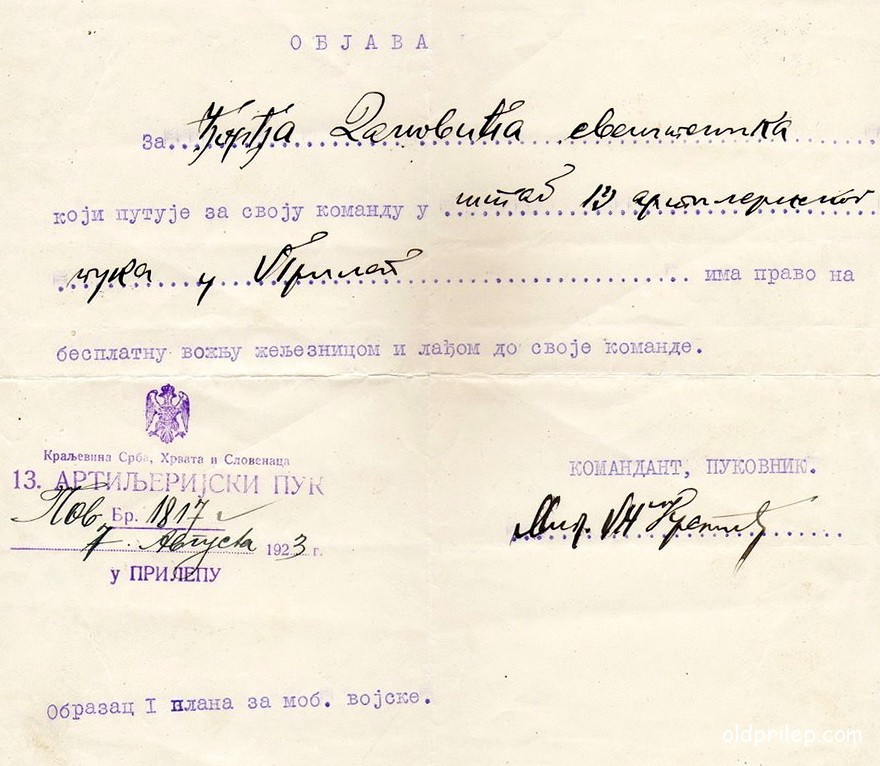 ОБЈАВА
За Ђорђа свештеника
који путује за своју команду у штаб 13 артилериског
пука у Прилеп има право на
бесплатну вожњу жељезницом и лађом до своје команде.
Краљевина Срба, Хрвата и Словенаца
13. АРТИЉЕРИЈСКИ ПУК
Пов. Бр. 1817
7. Августа 1923 г.
у ПРИЛЕПУ
КОМАНДАНТ, ПУКОВНИК.
Образац I плана за моб. војске.
oldprilep.com